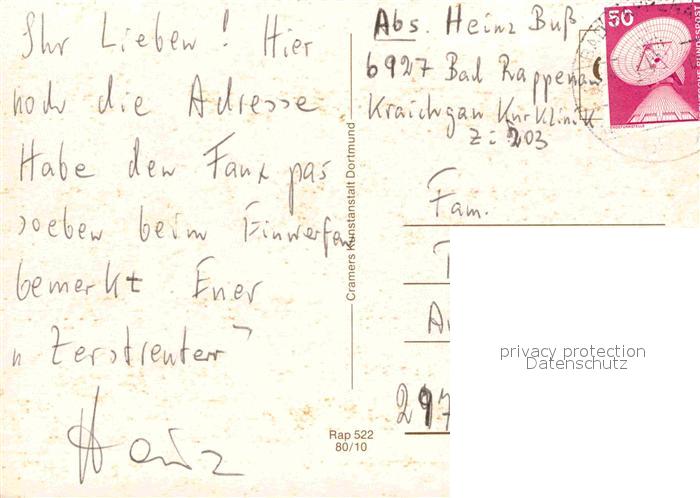 Ihr Lieben! Hier
noch die Adresse
Habe den Faux pas
soeben beim Einwerfen
bemerkt Euer
"Zerstreuter"
Heinz
Cramers Kunstanstalt Dortmund
Rap 522
80/10
Abs Heinz Buß
6927 Bad Rappenau
Kraichgau Kurklinik
Z: 203
50
Fam.
297
privacy protection
Datenschutz